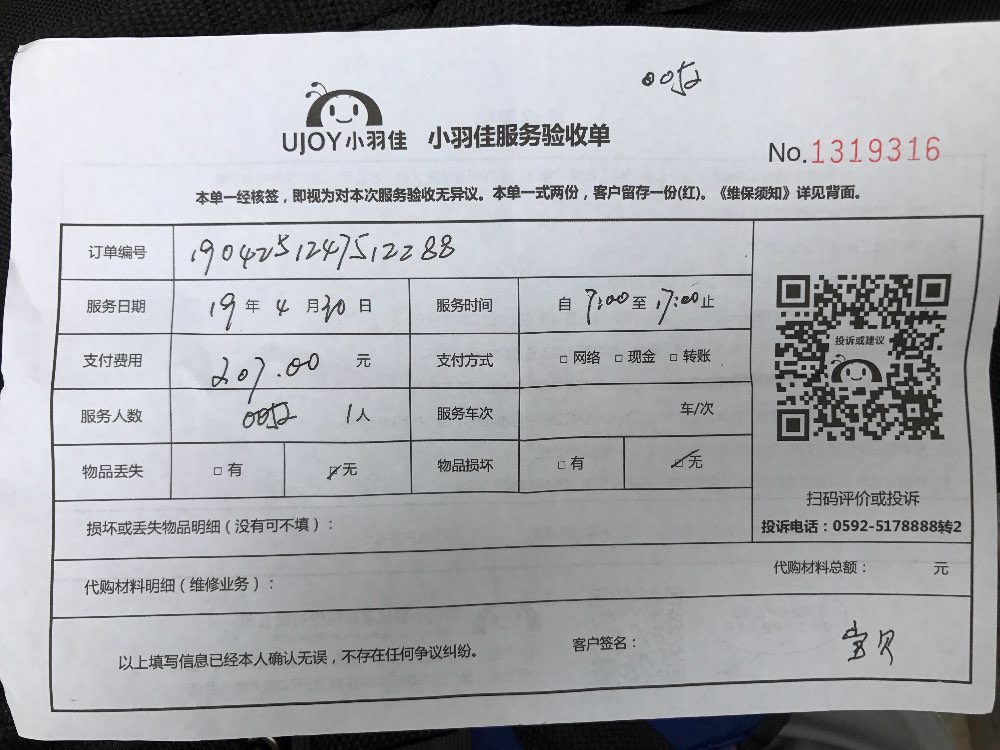 0052
UJOY小羽佳 小羽佳服务验收单
No.1319316
本单一经核签，即视为对本次服务验收无异议。本单一式两份，客户留存一份(红)。《维保须知》详见背面。
订单编号 1904251247512288
服务日期 19年 4月30日 服务时间 自 7:00 至 17:00 止
投诉或建议
支付费用 207.00 元 支付方式 □ 网络 □ 现金 □ 转账
服务人数 0052 1人 服务车次 车/次
物品丢失 □ 有 ☑无 物品损坏 □ 有 ☑无
扫码评价或投诉
投诉电话：0592-5178888转2
损坏或丢失物品明细（没有可不填）：
代购材料明细（维修业务）： 代购材料总额： 元
以上填写信息已经本人确认无误，不存在任何争议纠纷。 客户签名： 宝贝